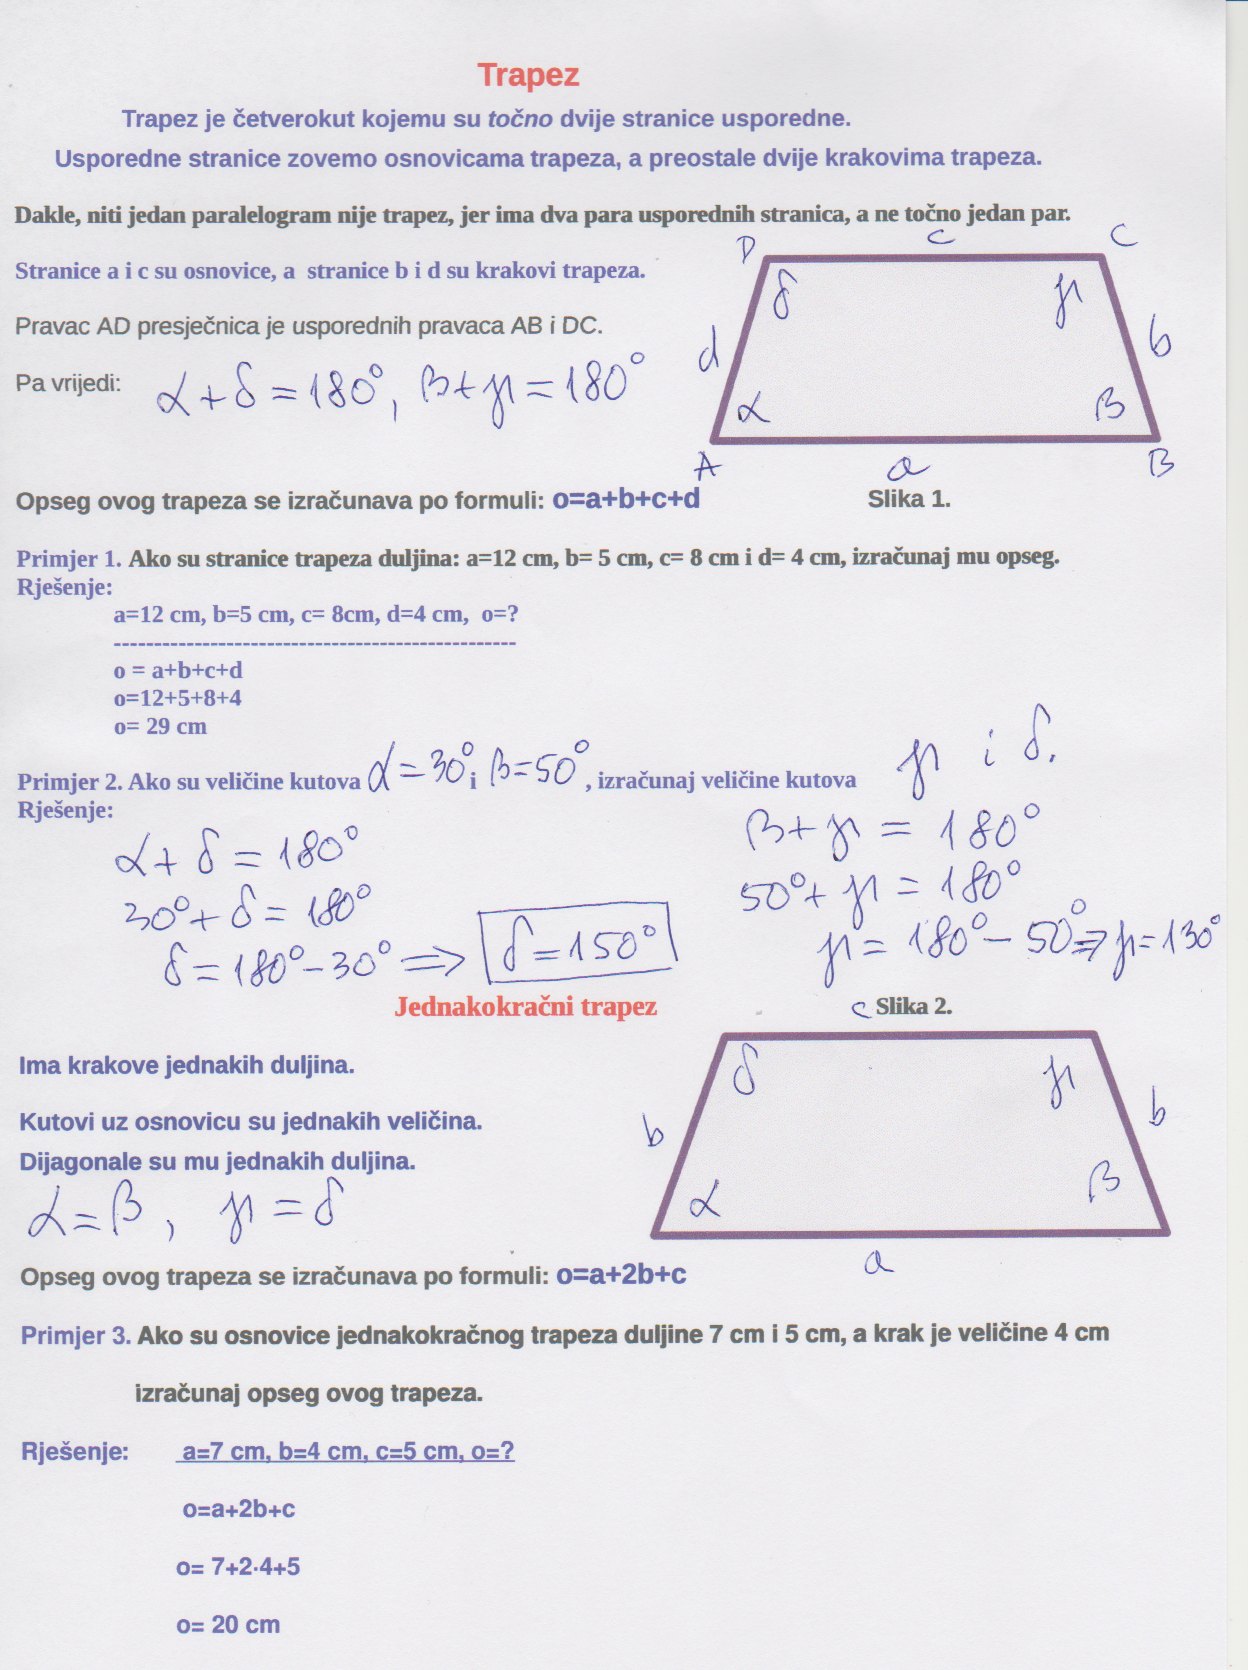 Trapez
Trapez je četverokut kojemu su točno dvije stranice usporedne.
Usporedne stranice zovemo osnovicama trapeza, a preostale dvije krakovima trapeza.
Dakle, niti jedan paralelogram nije trapez, jer ima dva para usporednih stranica, a ne točno jedan par.
D c C
Stranice a i c su osnovice, a stranice b i d su krakovi trapeza.
δ γ
Pravac AD presječnica je usporednih pravaca AB i DC.
d b
Pa vrijedi: α+δ=180°, β+γ=180°
α β
A a B
Opseg ovog trapeza se izračunava po formuli: o=a+b+c+d Slika 1.
Primjer 1. Ako su stranice trapeza duljina: a=12 cm, b= 5 cm, c= 8 cm i d= 4 cm, izračunaj mu opseg.
Rješenje:
a=12 cm, b=5 cm, c= 8cm, d=4 cm, o=?
--------------------------------------------------
o = a+b+c+d
o=12+5+8+4
o= 29 cm
Primjer 2. Ako su veličine kutova α=30° i β=50°, izračunaj veličine kutova γ i δ.
Rješenje:
α+δ=180°
30°+δ=180°
δ=180°-30° ⇒ δ=150°
β+γ=180°
50°+γ=180°
γ=180°-50° ⇒ γ=130°
Jednakokračni trapez c Slika 2.
Ima krakove jednakih duljina.
δ γ
Kutovi uz osnovicu su jednakih veličina.
b b
Dijagonale su mu jednakih duljina.
α=β, γ=δ
α β
a
Opseg ovog trapeza se izračunava po formuli: o=a+2b+c
Primjer 3. Ako su osnovice jednakokračnog trapeza duljine 7 cm i 5 cm, a krak je veličine 4 cm
izračunaj opseg ovog trapeza.
Rješenje: a=7 cm, b=4 cm, c=5 cm, o=?
o=a+2b+c
o= 7+2·4+5
o= 20 cm